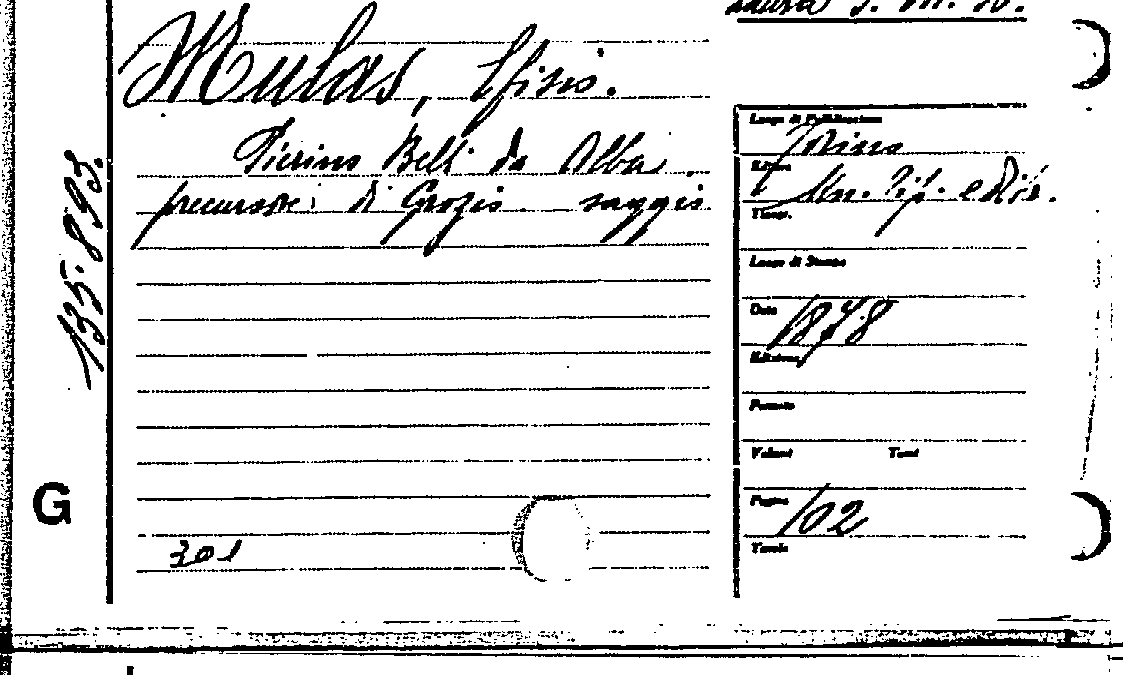 Mulas, Efisio.
Pierino Belli da Alba
precursore di Grozio saggio
135.893.
G
301
Luogo di Pubblicazione
Torino
Editore
Un. Tip. e Dit.
Timp.
Luogo di Stampa
Data
1878
Edizione
Formato
Volumi Tomi
Pagine
102
Tavole